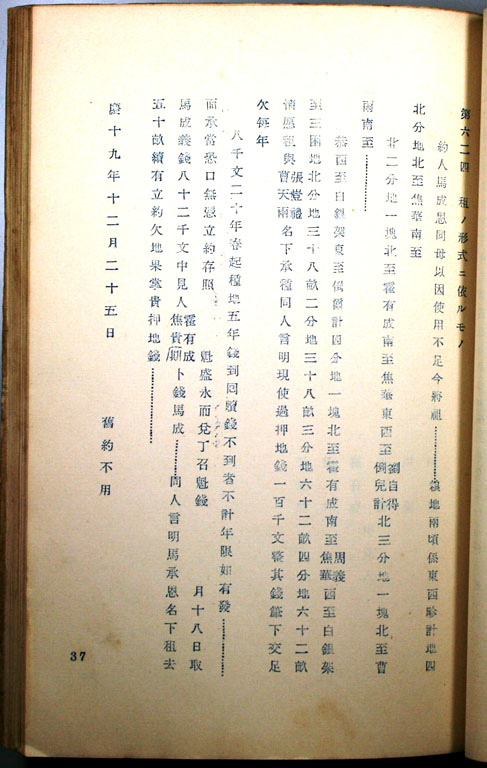 第六二四 租ノ形式ニ依ルモノ
約人馬成恩同母以因使用不足今將祖…………地兩頃係東西畛計地四
北分地北至焦華南至
北二分地一塊北至霍有成南至焦華東西至劉自得倒兒計北三分地一塊北至曹
雨南至…………
恭西至白銀架東至倒爾計四分地一塊北至霍有成南至周義焦華西至白銀架
至三困地北分地三十八畝二分地三十八畝三分地六十二畝四分地六十二畝
情愿租與張燈禮曹天雨名下承種同人言明現使過押地錢一百千文整其錢筆下交足
欠每年
八千文二十年春起種地五年錢到回贖錢不到者不計年限如有發…………
而承當恐口無憑立約存照 魁盛永而兌丁召魁錢 月十八日取
馬成義錢八十二千文中見人霍有成焦貴卜錢馬成…………同人言明馬承恩名下租去
五十畝續有立約欠地果掌貴押地錢…………
慶十九年十二月二十五日 舊約不用
37